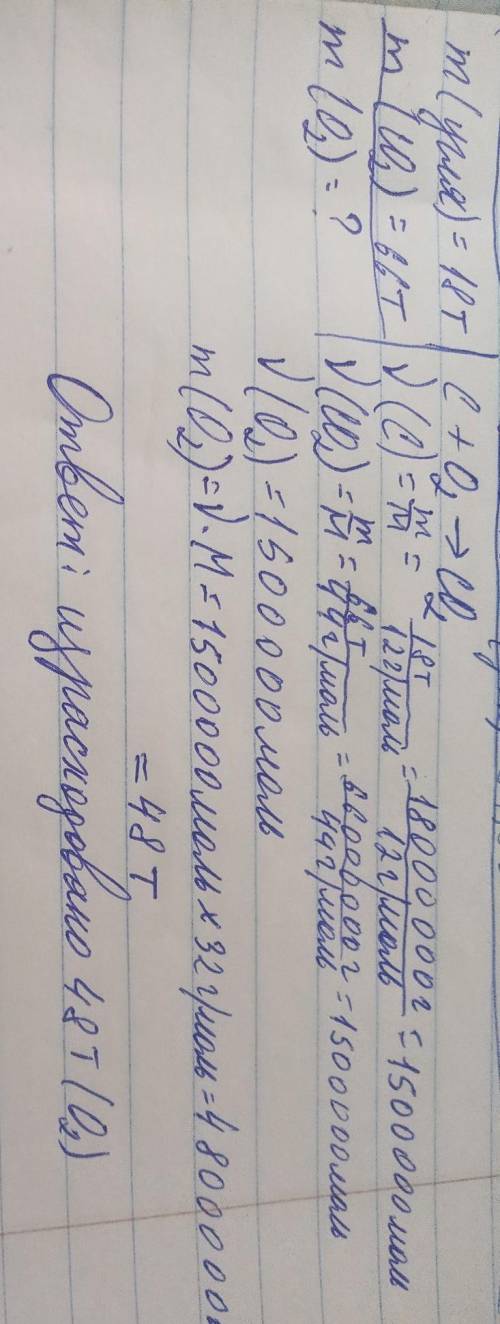 m(угля) = 18т | C + O₂ → CO₂
m(CO₂) = 66т | ν(C) = m/M = 18т/12г/моль = 18000000г/12г/моль = 1500000моль
m(O₂) = ? | ν(CO₂) = m/M = 66т/44г/моль = 66000000г/44г/моль = 1500000моль
ν(O₂) = 1500000моль
m(O₂) = ν·M = 1500000моль × 32г/моль = 4800000
= 48т
Ответ: израсходовано 48т (O₂)